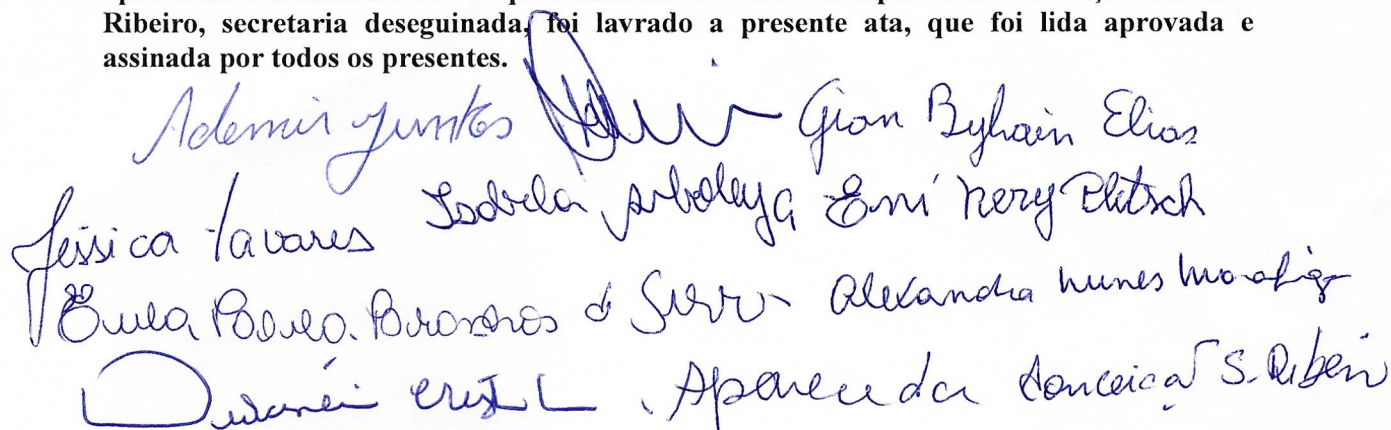 Ribeiro, secretaria deseguinada, foi lavrado a presente ata, que foi lida aprovada e
assinada por todos os presentes.
Ademir Juntos Gian Byhain Elias
Jéssica Tavares Isabela Arboleya Eni Nery Pletsch
Paula Alexandra Nunes
Aparecida Conceição S. Ribeiro